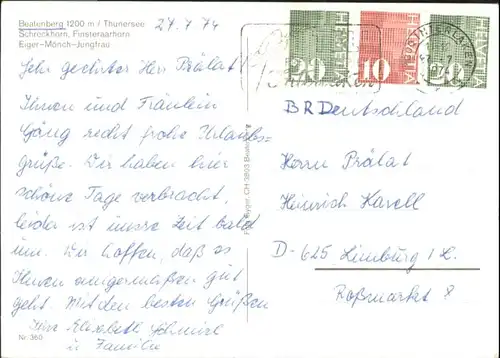 Beatenberg 1200 m / Thunersee
Schreckhorn, Finsteraarhorn
Eiger-Mönch-Jungfrau
27.7.74
Sehr geehrter Herr Prälat!
Ihnen und Fräulein
Gäng recht frohe Urlaubs-
grüße. Wir haben hier
schöne Tage verbracht,
leider ist unsre Zeit bald
um. Wir hoffen, daß es
Ihnen einigermaßen gut
geht. Mit den besten Grüßen
Ihre Elisabeth
u Familie
Nr. 360
CH 3803 Beatenberg
HELVETIA
20
HELVETIA
10
HELVETIA
20
INTERLAKEN
BR Deutschland
Herrn Prälat
Heinrich Karell
D-625 Limburg/L.
Roßmarkt 8